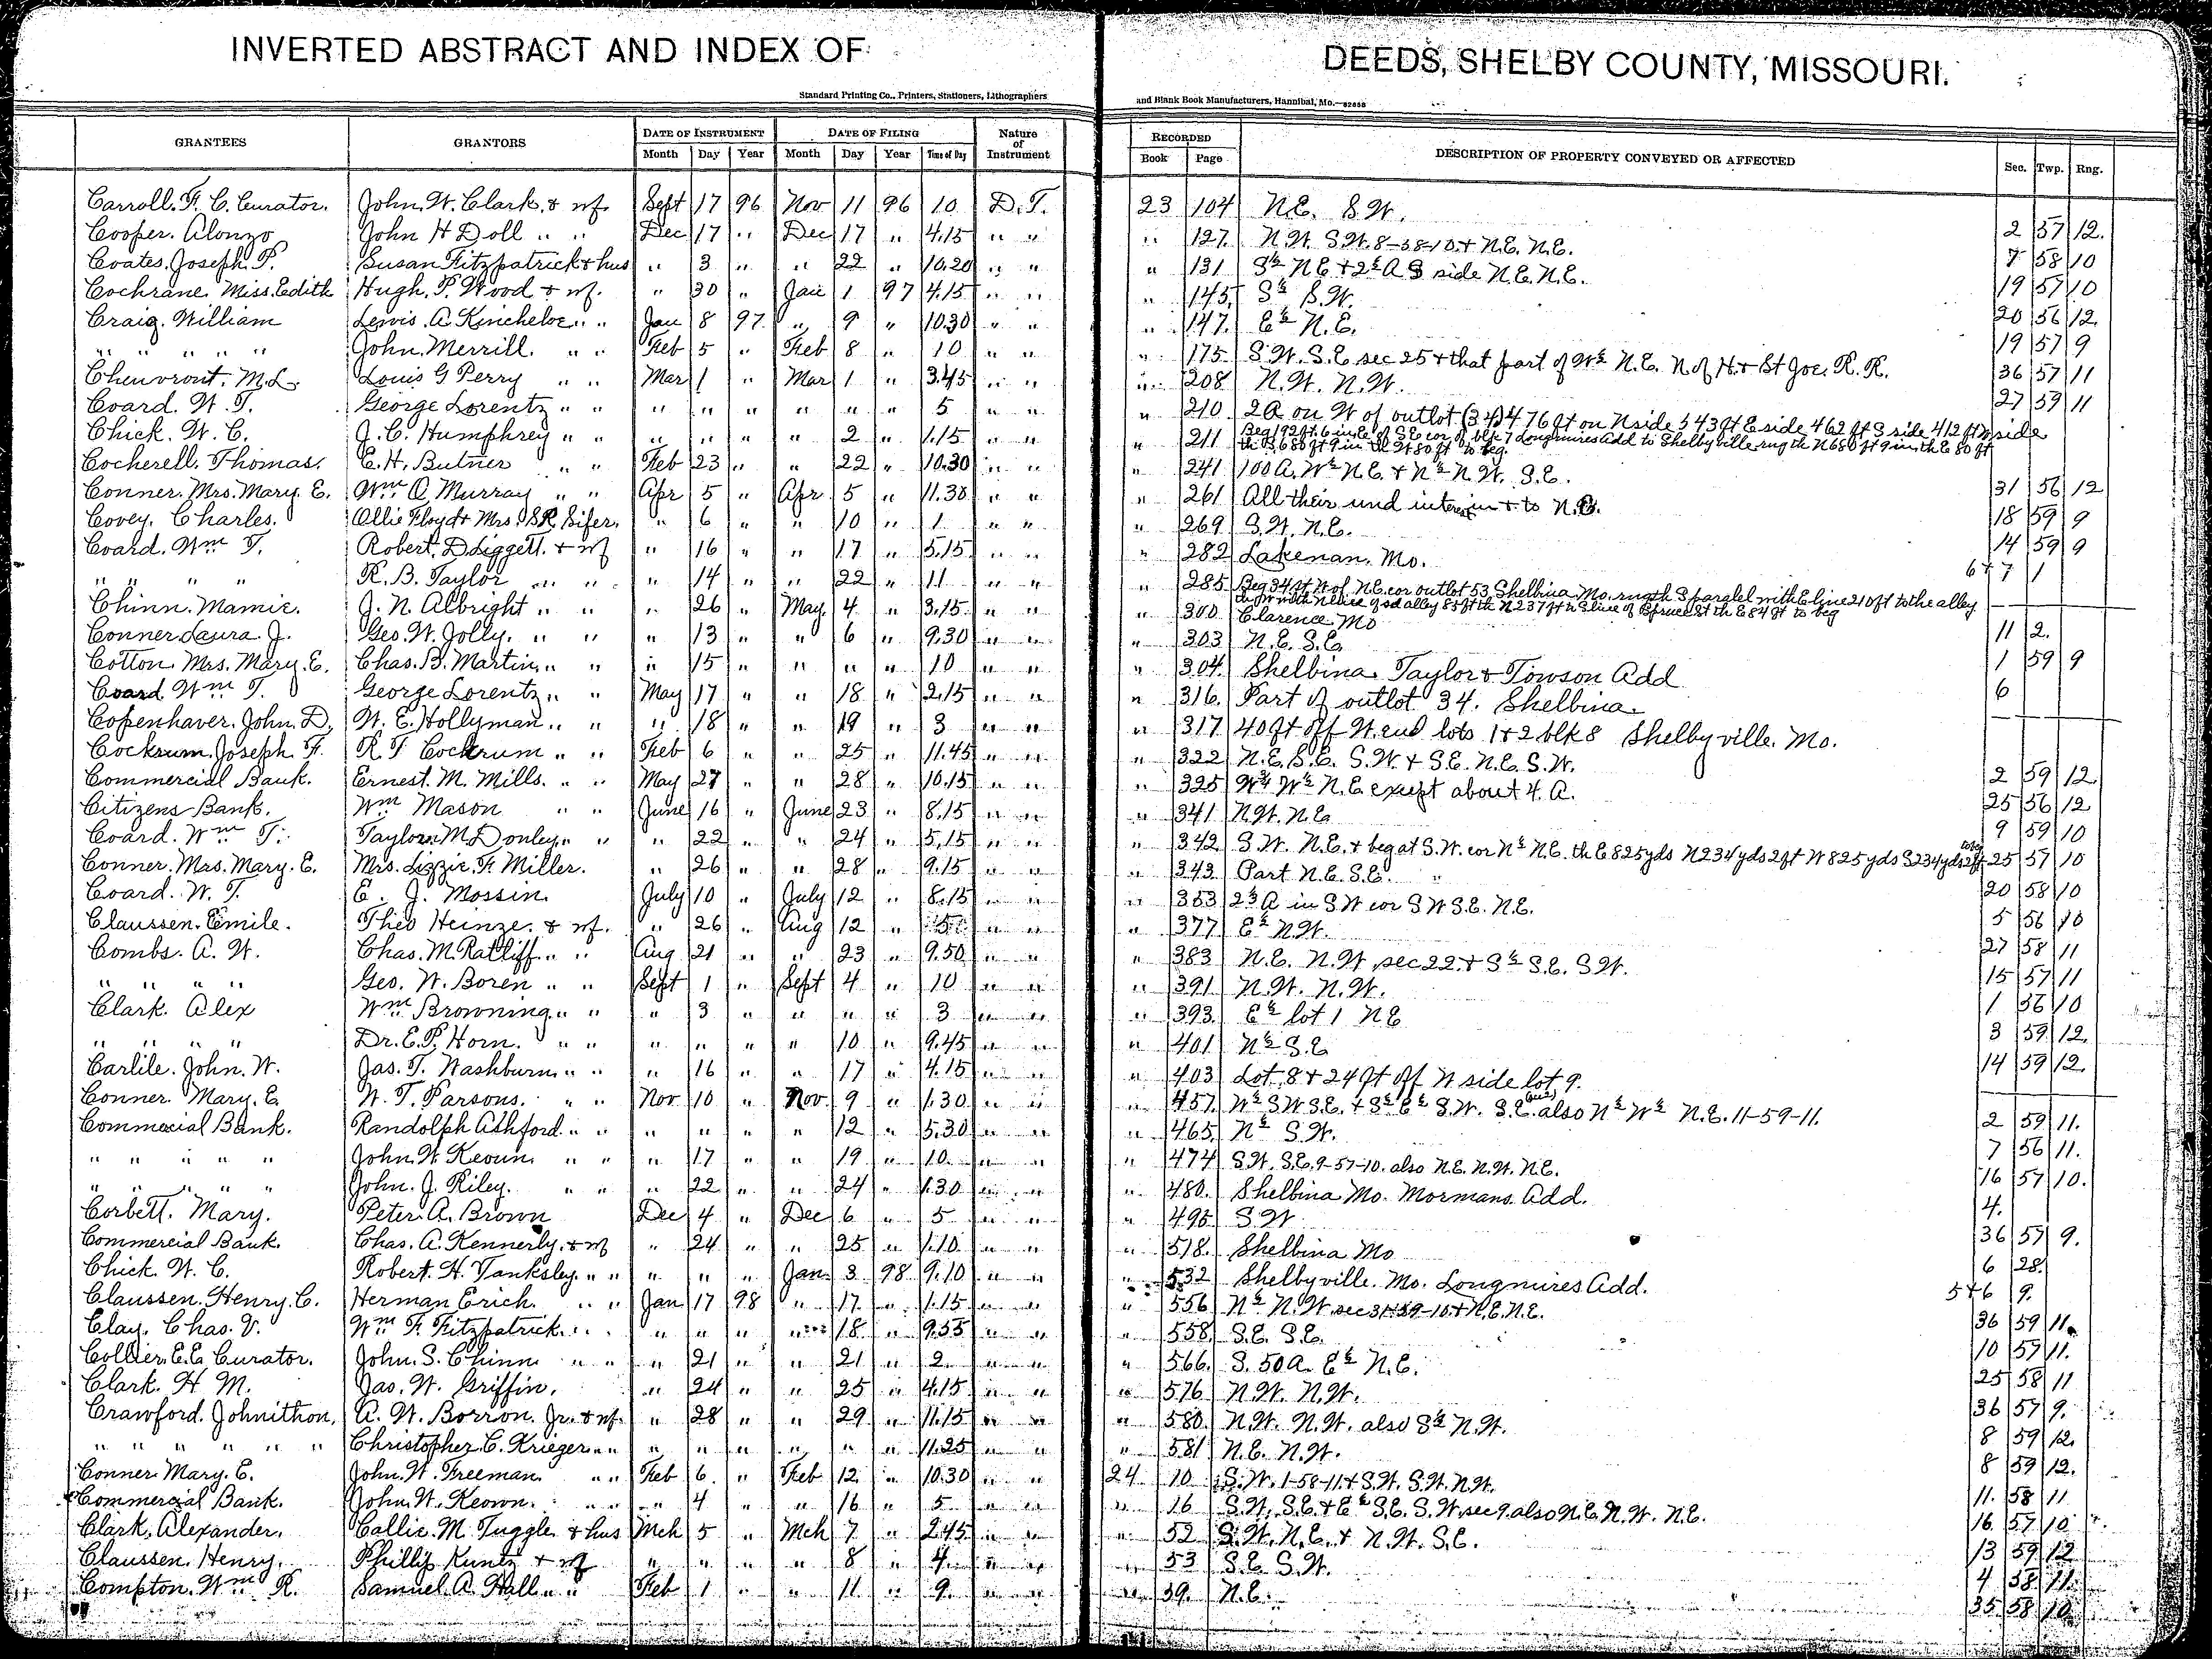 INVERTED ABSTRACT AND INDEX OF DEEDS, SHELBY COUNTY, MISSOURI.
Standard Printing Co., Printers, Stationers, Lithographers and Blank Book Manufacturers, Hannibal, Mo.—82658
GRANTEES GRANTORS DATE OF INSTRUMENT DATE OF FILING Nature of Instrument RECORDED DESCRIPTION OF PROPERTY CONVEYED OR AFFECTED Sec. Twp. Rng.
Month Day Year Month Day Year Time of Day Book Page
Carroll. F. C. Curator. John. W. Clark. & wf. Sept 17 96 Nov 11 96 10 D. T. 23 104 N.E. S.W. 2 57 12.
Cooper. Alonzo John H Doll " " Dec 17 " Dec 17 " 4.15 " " " 127. N.W. S.W. 8-58-10. & N.E. N.E. 7 58 10
Coates. Joseph. P. Susan Fitzpatrick & hus " 3 " " 22 " 10.20 " " " 131 S½ N.E & 2½ A S side N.E. N.E. 19 57 10
Cochrane. Miss. Edith Hugh. P. Wood & wf. " 30 " Jan 1 97 4.15 " " " 145. S½ S.W. 20 56 12.
Craig. William Lewis. A. Kincheloe " " Jan 8 97. " 9 " 10.30 " " " 147. E½ N.E. 19 57 9
" " " " " John. Merrill. " " Feb 5 " Feb 8 " 10 " " " 175 S.W. S.E sec 25 & that part of W½ N.E. N of H. & St Joe. R. R. 36 57 11
Chenvront. M. L. Louis G Perry " " Mar 1 " Mar 1 " 3.45 " " " 208 N.W. N.W. 27 59 11
Coard. W. T. George Lorentz " " " " " " " " 5 " " " 210 2A on W of outlot (34) 476 ft on N side 543 ft E side 462 ft S side 412 ft W side
Chick. W. C. J. C. Humphrey " " " " " " 2 " 1.15 " " " 211 Beg 192 ft. 6 in E. of S E cor of blk 7 Longmires Add to Shelbyville rng th N 680 ft 9 in th E 80 ft
th S. 680 ft 9 in th W 80 ft to beg.
Cocherell. Thomas. E. H. Butner " " Feb 23 " " 22 " 10.30 " " " 241 100 A. W½ N.E. & N½ N.W. S.E. 31 56 12
Conner. Mrs. Mary. E. Wm O Murray " " Apr 5 " Apr. 5 " 11.30 " " " 261 All their und interest in & to N.E. 18 59 9
Covey. Charles. Ollie Floyd & Mrs. S.R. Sifer. " 6 " " 10 " 1 " " " 269 S.W. N.E. 14 59 9
Coard. Wm T. Robert. D. Liggett. & wf " 16 " " 17 " 5.15 " " " 282 Lakenan. Mo. 6 & 7 1
" " " " R. B. Taylor " " " 14 " " 22 " 11 " " " 285 Beg 34 ft. W of N.E. cor outlot 53 Shelbina. Mo. rng th S paralel with E line 210 ft to the alley
th W with N line of sd alley 85 ft th N 237 ft to S line of Spruce St th E 84 ft to beg
Chinn. Mamie. J. N. Albright " " " 26 " May. 4 " 3.15 " " " 300 Clarence Mo 11 2.
Conner Laura. J. Geo. W. Jolly. " " " 13 " " 6 " 9.30 " " " 303 N.E. S.E. 1 59 9
Cotton. Mrs. Mary. E. Chas. B. Martin " " " 15 " " " " 10 " " " 304. Shelbina. Taylor & Towson Add 6
Coard. Wm T. George Lorentz " " May 17 " " 18 " 2.15 " " " 316. Part of outlot 34. Shelbina.
Copenhaver. John. D. W. E. Hollyman " " " 18 " " 19 " 3 " " " 317 40 ft off W. end lots 1 & 2 blk 8 Shelbyville. Mo.
Cockrum. Joseph. F. R. F Cockrum " " Feb 6 " " 25 " 11.45 " " " 322 N.E. S.E. S.W. & S.E. N.E. S.W. 2 59 12
Commercial Bank. Ernest. M. Mills. " " May 27 " " 28 " 10.15 " " " 325 W¾ W½ N.E except about 4. A. 25 56 12
Citizens Bank. Wm Mason " " June 16 " June 23 " 8.15 " " " 341 N.W. N.E. 9 59 10
Coard. Wm T. Taylor M. Donley " " " 22 " " 24 " 5.15 " " " 342 S.W. N.E. & beg at S.W. cor N½ N.E. th E 825 yds N 234 yds 2 ft W 825 yds S 234 yds 2 ft to beg 25 57 10
Conner. Mrs. Mary. E. Mrs. Lizzie. F. Miller. " 26 " " 28 " 9.15 " " " 343 Part N.E. S.E. 20 58 10
Coard. W. T. E. J. Mossin. July 10 " July 12 " 8.15 " " " 353 2½ A in S W cor S W S.E. N.E. 5 56 10
Claussen. Emile. Theo Heinze. & wf. " 26 " Aug 12 " 5 " " " 377. E½ N.W. 27 58 11
Combs. A. W. Chas. M. Ratliff " " Aug 21 " " 23 " 9.50 " " " 383 N.E. N.W sec 22. & S½ S.E. S.W. 15 57 11
" " " " Geo. W. Boren " " Sept 1 " Sept 4 " 10 " " " 391 N.W. N.W. 1 56 10
Clark. Alex Wm Browning " " " 3 " " " " 3 " " " 393. E½ lot 1 N E 3 59 12.
" " " " Dr. E. P. Horn. " " " " " " 10 " 9.45 " " " 401 N½ S.E 14 59 12.
Carlile. John. W. Jas. T. Washburn " " " 16 " " 17 " 4.15 " " " 403 Lot 8 & 24 ft off N side lot 9.
Conner. Mary. E. W. T. Parsons. " " Nov 10 " Nov. 9 " 1.30 " " " 457. W½ S W S.E. & S½ E½ S.W. S.E. also N½ W½ N.E. 11-59-11. 2 59 11.
Commercial Bank. Randolph Ashford " " " " " " 12 " 5.30 " " " 465. N½ S.W. 7 56 11.
" " " " " John. W. Keoun. " " " 17 " " 19 " 10. " " " 474 S.W. S.E. 9-57-10. also N.E. N.W. N.E. 16 57 10.
" " " " " John. J. Riley. " " " 22 " " 24 " 1.30 " " " 480. Shelbina Mo. Mormans. Add. 4.
Corbett. Mary. Peter. A. Brown Dec 4 " Dec 6 " 5 " " " 495 S.W 36 57 9.
Commercial Bank. Chas. A. Kennerly. & wf " 24 " " 25 " 1.10. " " " 518. Shelbina Mo 6 28.
Chick. W. C. Robert. H. Tanksley. " " " " " Jan. 3 98 9.10 " " " 532 Shelbyville. Mo. Longmires Add. 5 & 6 9.
Claussen. Henry. C. Herman Erich. " " Jan 17 98 " 17 " 1.15 " " " 556 N½ N.W sec 31-59-10. & N.E. N.E. 36 59 11.
Clay. Chas. V. Wm. F. Fitzpatrick " " " " " " 18 " 9.55 " " " 558. S.E. S.E. 10 57 11.
Collier. E. E. Curator. John. S. Chinn " " " 21 " " 21 " 2 " " " 566. S. 50 A. E½ N.E. 25 58 11
Clark. H M. Jas. W. Griffin. " 24 " " 25 " 4.15 " " " 576 N.W. N.W. 36 57 9.
Crawford. Johnithon. A. W. Borron. Jr. & wf. " 28 " " 29 " 11.15 " " " 580. N.W. N.W. also S½ N.W. 8 59 12.
" " " " " " Christopher. C. Krieger " " " " " " " " 11.25 " " " 581 N.E. N.W. 8 59 12.
Conner Mary. E. John. W. Freeman. " " Feb 6. " Feb 12 " 10.30 " " 24 10 S.W. 1-58-11. & S.W. S.W. N.W. 11. 58 11
Commercial Bank. John. W. Keown. " " " 4 " " 16 " 5 " " " 16 S.W. S.E. & E½ S.E. S.W. sec 9. also N.E. N.W. N.E. 16. 57 10
Clark. Alexander. Callie. M. Tuggle & hus Mch 5 " Mch 7 " 2.45 " " " 52 S.W. N.E. & N.W. S.E. 13 59 12
Claussen. Henry. Phillip Kuntz & wf " " " " 8 " 4 " " " 53 S.E S.W. 4 58 11.
Compton. Wm R. Samuel. A. Hall " " Feb 1 " " 11 " 9. " " " 39. N.E. 35 58 10